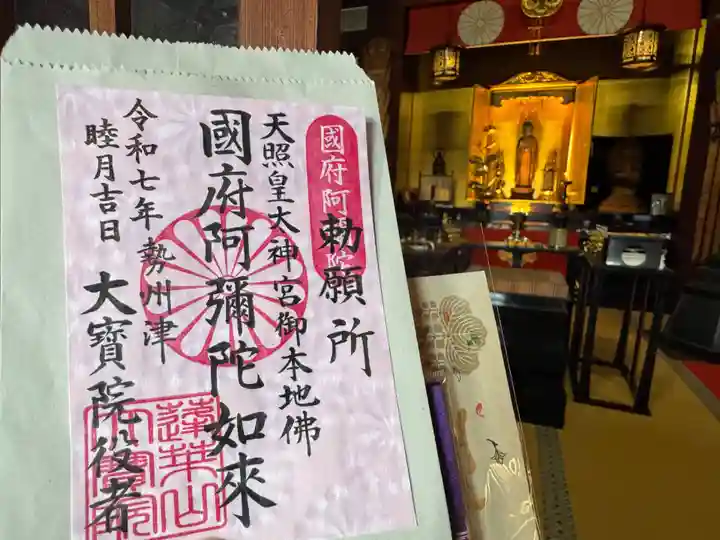 國府阿彌陀
勅願所
天照皇大神宮御本地佛
國府阿彌陀如來
令和七年
睦月吉日
勢州津
大寶院役者
蓮華山
大寶院